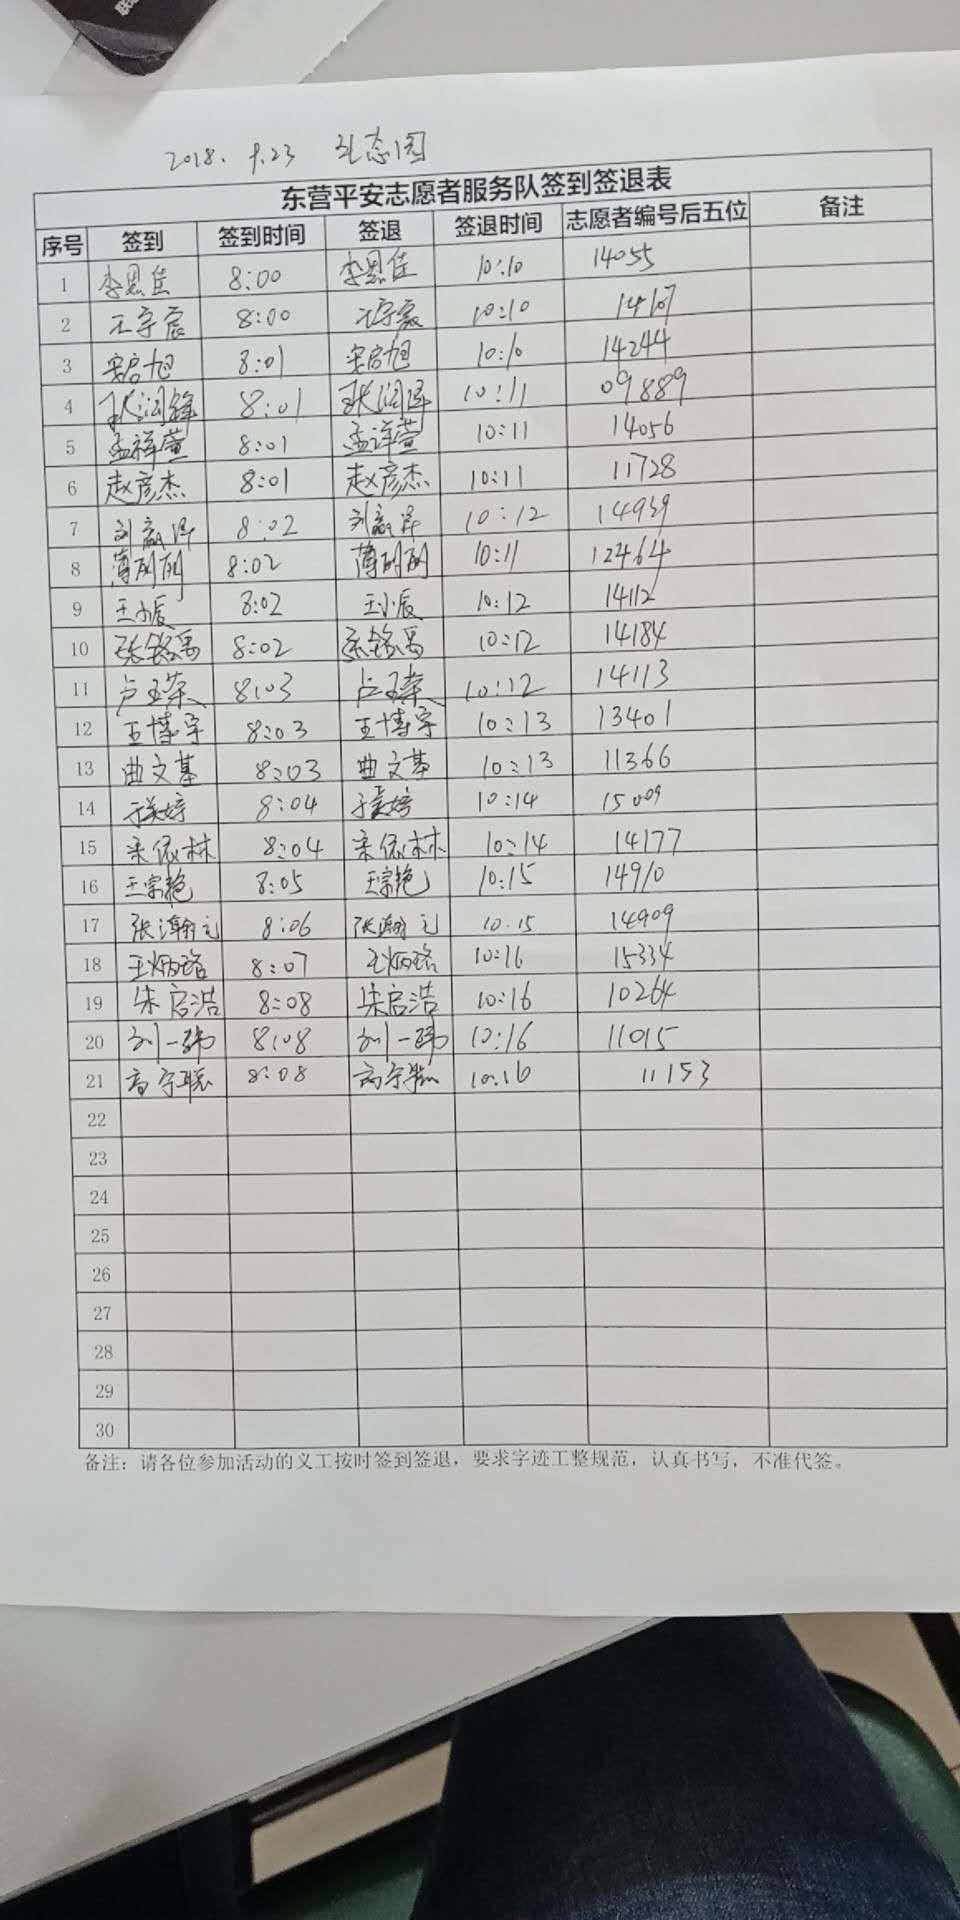 2018. 9.23 生态园
东营平安志愿者服务队签到签退表
序号 签到 签到时间 签退 签退时间 志愿者编号后五位 备注
1 李恩佳 8:00 李恩佳 10:10 14055
2 王宇宸 8:00 10:10 14107
3 安启旭 8:01 安启旭 10:10 14244
4 张润锋 8:01 张润泽 10:11 09889
5 孟祥萱 8:01 孟祥萱 10:11 14056
6 赵彦杰 8:01 赵彦杰 10:11 11728
7 刘嬴泽 8:02 刘嬴泽 10:12 14939
8 薄丽丽 8:02 薄丽丽 10:11 12464
9 王小辰 8:02 王小辰 10:12 14112
10 张铭禹 8:02 张铭禹 10:12 14184
11 卢玉荣 8:03 卢玉荣 10:12 14113
12 王博宇 8:03 王博宇 10:13 13401
13 曲文基 8:03 曲文基 10:13 11366
14 8:04 10:14 15009
15 宋依林 8:04 宋依林 10:14 14177
16 王宗艳 8:05 王宗艳 10:15 14910
17 张瀚元 8:06 张瀚元 10.15 14909
18 王炳珞 8:07 王炳珞 10:16 15334
19 朱启浩 8:08 朱启浩 10:16 10264
20 刘一玮 8:08 刘一玮 10:16 11015
21 高宇聪 8:08 高宇聪 10:16 11153
22
23
24
25
26
27
28
29
30
备注：请各位参加活动的义工按时签到签退，要求字迹工整规范，认真书写，不准代签。